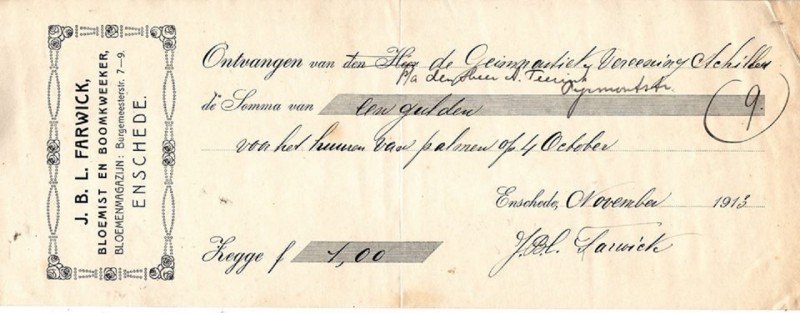 J. B. L. FARWICK,
BLOEMIST EN BOOMKWEEKER,
BLOEMENMAGAZIJN: Burgemeesterstr. 7—9.
ENSCHEDE.
Ontvangen van den Heer de Gymnastiek Vereening Achilles
p/a den Heer A.
de Somma van een gulden
9.
voor het huuren van palmen op 4 October
Enschede, November 1913
Zegge f 1,00
J.B.L. Farwick